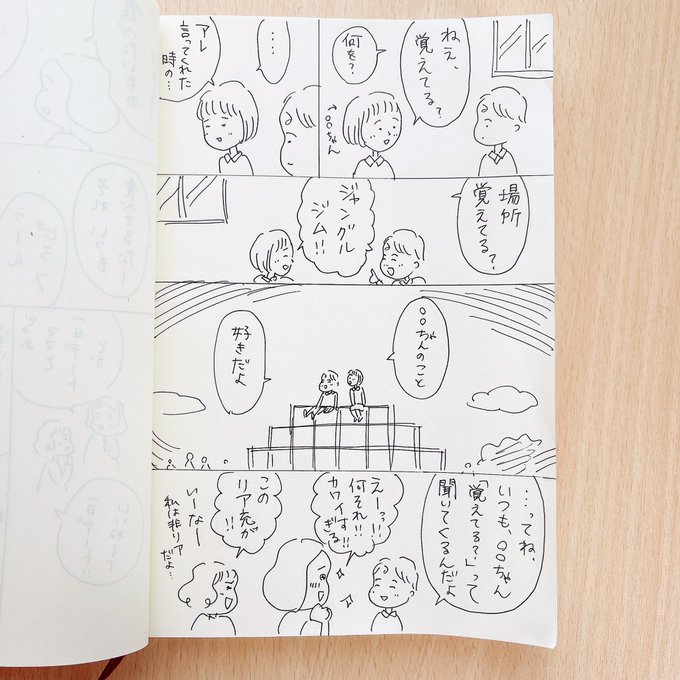 ねえ、
覚えてる?
何を?
↑○○ちゃん
・・・
アレ
言ってくれた
時の…
場所
覚えてる?
ジャングル
ジム!!
○○ちゃんのこと
好きだよ
…ってね、
いつも、○○ちゃん
「覚えてる?」って
聞いてくるんだよ
えーっ!!
何それ!!
カワイイすぎる
この
リア充が
!!
いーなー
私は非リア
だよ…